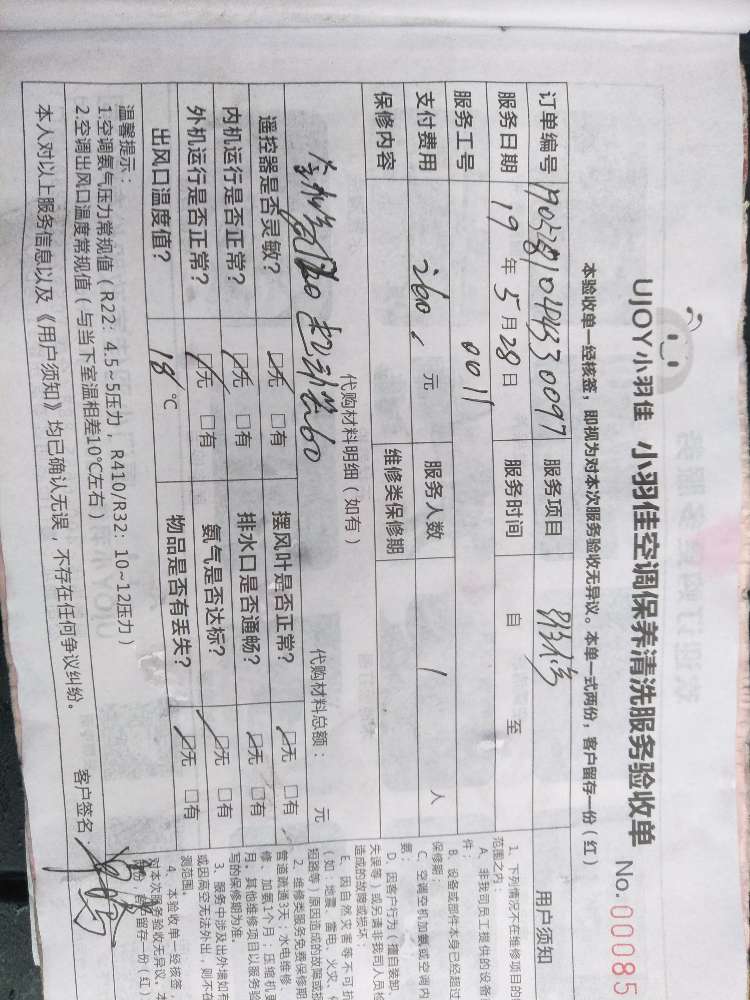 UJOY小羽佳 小羽佳空调保养清洗服务验收单 No.00085
本验收单一经核签，即视为对本次服务验收无异议。本单一式两份，客户留存一份(红)
订单编号 服务项目
服务日期 19年5月28日 服务时间 自 至
服务工号 0011
支付费用 260 元 服务人数 1 人
保修内容 维修类保修期
代购材料明细(如有) 代购材料总额： 元
遥控器是否灵敏? 无 有 摆风叶是否正常? 无 有
内机运行是否正常? 无 有 排水口是否通畅? 无 有
外机运行是否正常? 无 有 氨气是否达标? 无 有
出风口温度值? 18 ℃ 物品是否有丢失? 无 有
温馨提示：
1.空调氨气压力常规值(R22: 4.5~5压力, R410/R32: 10~12压力)
2.空调出风口温度常规值(与当下室温相差10℃左右)
本人对以上服务信息以及《用户须知》均已确认无误，不存在任何争议纠纷。
客户签名：
用户须知
1、下列情况不在维修项目的
范围之内：
A、非我司员工提供的设备
件；
B、设备或部件本身已经超过
保修期；
C、空调空机加氨或空调内
氨
D、因客户行为(擅自装卸、
失误等)或另请非我司人员
造成的故障或损坏；
E、因自然灾害等不可抗
(如：地震、雷电、火灾、
短路等)原因造成的故障或损
2、维修类服务免费保修期
管道疏通3天；水电维修、
修、加氨1个月；压缩机
月，其他维修项目以服务
写的保修期为准。
3、服务中涉及出外墙如有
或因高空无法外出，则不在
测范围。
4、本验收单一经核签，
对本次服务验收无异议。本
留存一份(红)